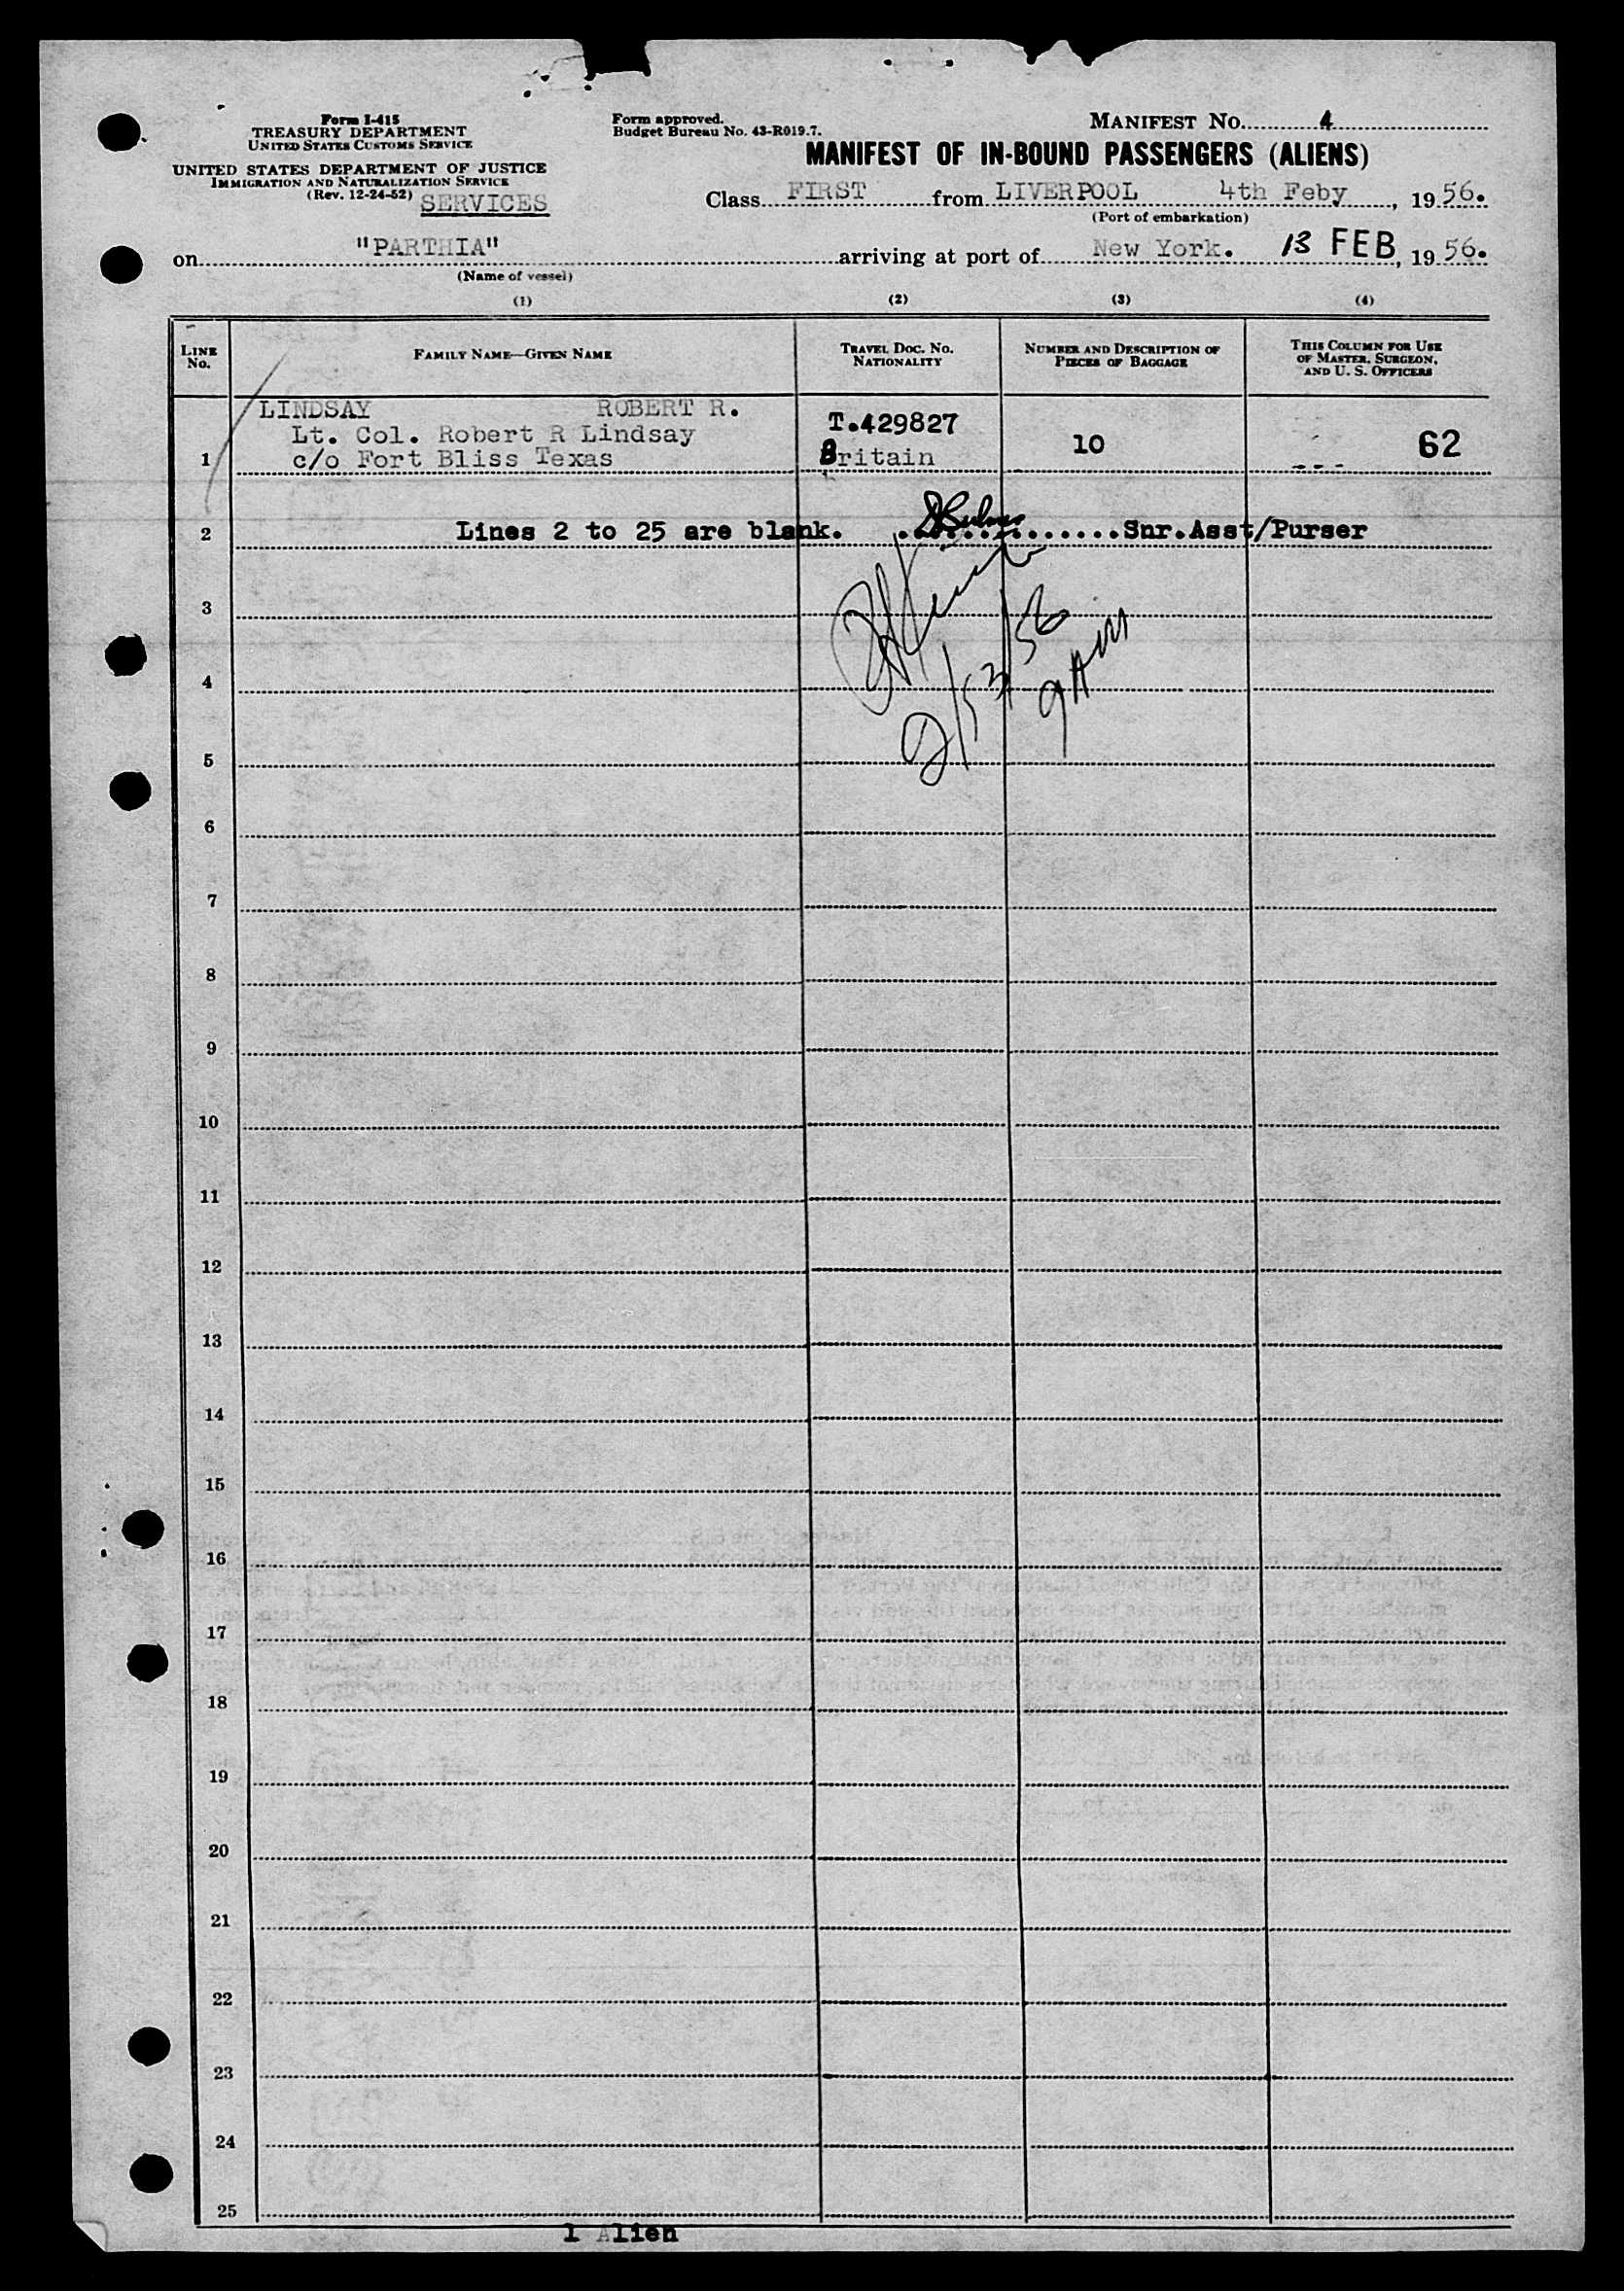 Form I-415
TREASURY DEPARTMENT
UNITED STATES CUSTOMS SERVICE
UNITED STATES DEPARTMENT OF JUSTICE
IMMIGRATION AND NATURALIZATION SERVICE
(Rev. 12-24-52) SERVICES
Form approved.
Budget Bureau No. 43-R019.7.
MANIFEST NO. 4
MANIFEST OF IN-BOUND PASSENGERS (ALIENS)
Class FIRST from LIVERPOOL 4th Feby, 1956.
(Port of embarkation)
on "PARTHIA" arriving at port of New York. 13 FEB, 1956.
(Name of vessel)
(1) (2) (3) (4)
LINE No. FAMILY NAME—GIVEN NAME TRAVEL DOC. NO. NATIONALITY NUMBER AND DESCRIPTION OF PIECES OF BAGGAGE THIS COLUMN FOR USE OF MASTER, SURGEON, AND U. S. OFFICERS
LINDSAY ROBERT R.
Lt. Col. Robert R Lindsay T.429827 10 62
1 c/o Fort Bliss Texas Britain
2 Lines 2 to 25 are blank. Snr.Asst/Purser
3
2/13/56
9 AM
4
5
6
7
8
9
10
11
12
13
14
15
16
17
18
19
20
21
22
23
24
25
1 Alien